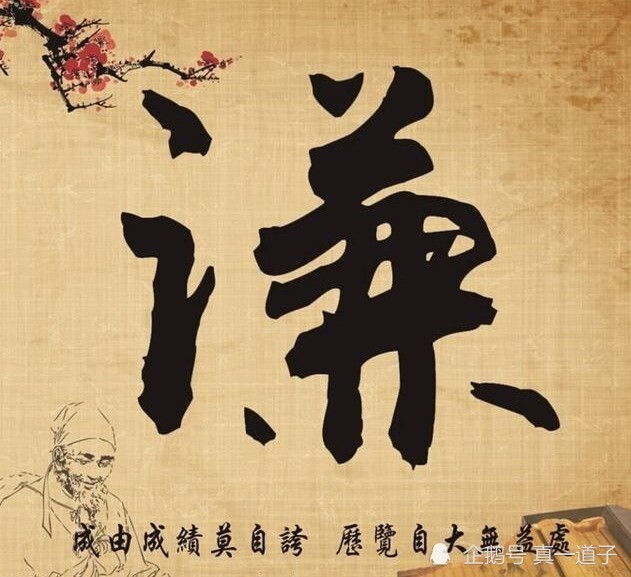 谦
成由成績莫自誇 歷覽自大無益處
企鹅号 真一道子